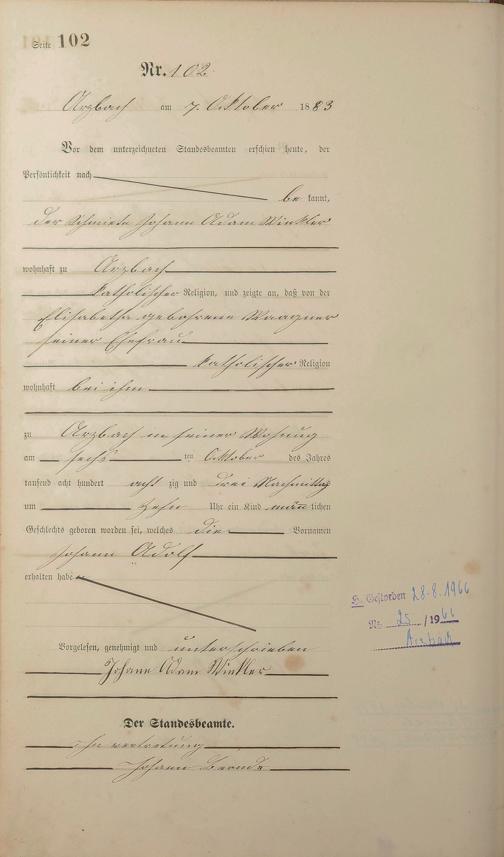 Seite 102
Nr. 102
Arzbach am 7. Oktober 1883
Vor dem unterzeichneten Standesbeamten erschien heute, der
Persönlichkeit nach
bekannt,
der Schmied Johann Adam Winkler
wohnhaft zu Arzbach
katholischer Religion, und zeigte an, daß von der
Elisabetha geborene Waagner
seiner Ehefrau
katholischer Religion
wohnhaft bei ihm
zu Arzbach in seiner Wohnung
am sechs ten Oktober des Jahres
tausend acht hundert acht zig und drei Nachmittag
um zehn Uhr ein Kind männlichen
Geschlechts geboren worden sei, welches die Vornamen
Johann Adolf
erhalten habe
Vorgelesen, genehmigt und unterschrieben
Johann Adam Winkler
Der Standesbeamte.
In vertretung
Johann
Gestorben 28-8.1966
Nr. 25 /1966
Arzbach